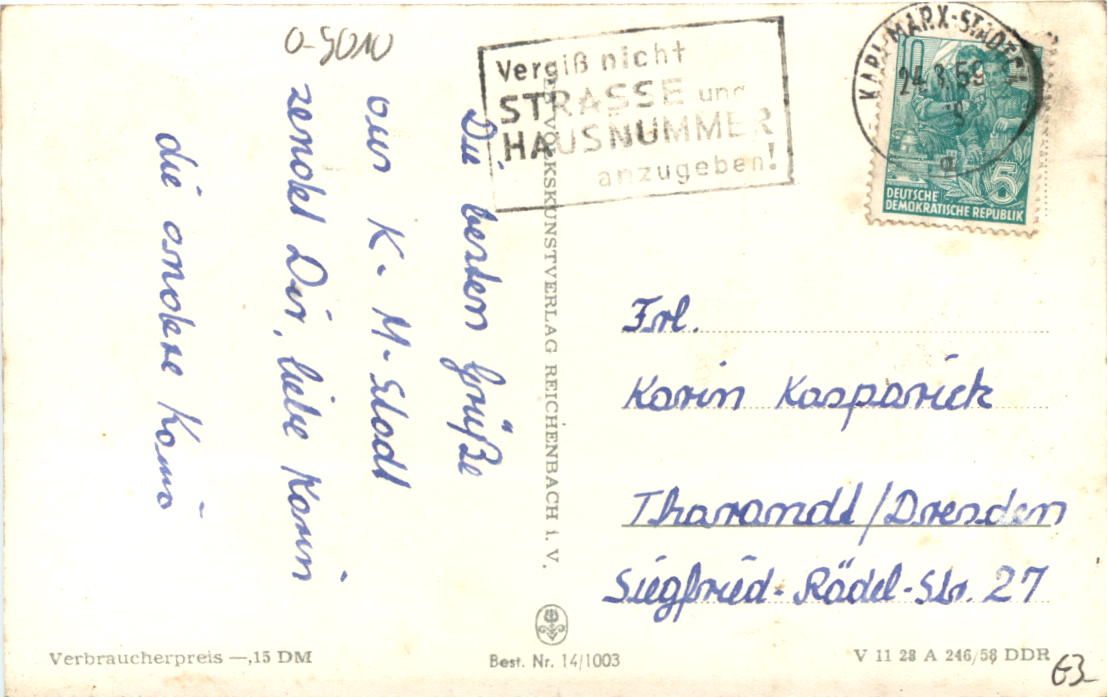 0-5010
Vergiß nicht
STRASSE und
HAUSNUMMER
anzugeben!
KARL-MARX-STADT
24.3.59
10
5
DEUTSCHE
DEMOKRATISCHE REPUBLIK
Die besten Grüße
aus K.-M-Stadt
sendet Dir, liebe Karin
die andere Karin
VOLKSKUNSTVERLAG REICHENBACH i. V.
Frl.
Karin Kasparick
Tharandt/Dresden
Siegfried-Rädel-Str. 27
Verbraucherpreis —,15 DM
Best. Nr. 14/1003
V 11 28 A 246/58 DDR